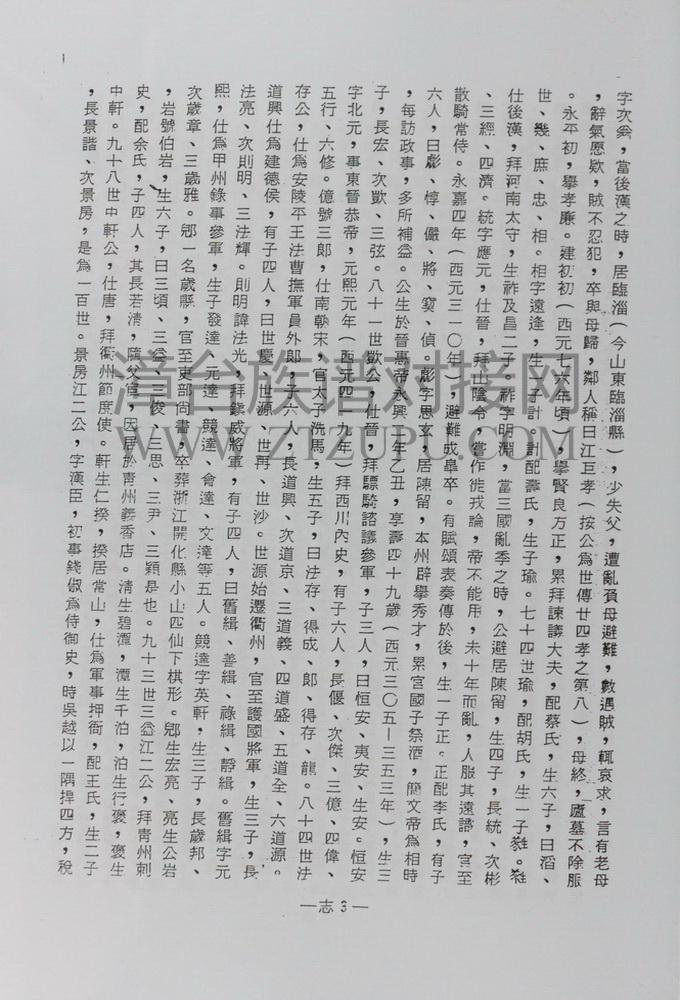 字次翁，當後漢之時，居臨淄（今山東臨淄縣），少失父，遭亂負母避難，數遇賊，輒哀求，言有老母
，辭氣愿欵，賊不忍犯，卒與母歸，鄰人稱曰江巨孝（按公為世傳廿四孝之第八），母終，廬墓不除服
。永平初，擧孝廉。建初初（西元七六年頃）擧賢良方正，累拜諫議大夫，配蔡氏，生六子，曰滔、
世、幾、庶、忠、相。相字遠逢，生一子計。計配壽氏，生子瑜。七十四世瑜，配胡氏，生一子㲋。㲋
仕後漢，拜河南太守，生祚及昌二子。祚字明淵，當三國亂季之時，公避居陳留，生四子，長統、次彬
、三經、四濟。統字應元，仕晉，拜山陰令，嘗作徙戎論，帝不能用，未十年而亂，人服其遠識，官至
散騎常侍。永嘉四年（西元三一〇年，避難成皐卒。有賦頌表奏傳於後，生一子正。正配李氏，有子
六人，曰彪、惇、儼、將、、偵。彪字思玄，居陳留，本州辟擧秀才，累官國子祭酒，簡文帝為相時
，每訪政事，多所補益。公生於晉惠帝永興二年乙丑，享壽四十九歲（西元三〇五—三五三年），生三
子，長宏、次歐、三弦。八十一世歐公，仕晉，拜驃騎諮議參軍，子三人，曰恒安、夷安、生安。恒安
字北元，事東晉恭帝，元熙元年（西元四一九年）拜西川內史，有子六人，長偃、次傑、三億、四偉、
五行、六修。億號三郎，仕南朝宋，官太子洗馬，生五子，曰法存、得成、郎、得存、龍。八十四世法
存公，仕為安陵平王法曹撫軍員外郎，子六人，長道興、次道京、三道義、四道盛、五道全、六道源。
道興仕為建德侯，有子四人，曰世慶、世源、世再、世沙。世源始遷衢州，官至護國將軍，生三子，長
法亮、次則明、三法輝。則明諱法光，拜鎮威將軍，有子四人，曰舊緝、善緝、祿緝、靜緝。舊緝字元
熙，仕為甲州錄事參軍，生子發達、元達、競達、會達、文達等五人。競達字英軒，生三子，長歲邦、
次歲章、三歲雅。郧一名歲縣，官至吏部尚書，卒葬浙江開化縣小山四仙下棋形。生宏亮、亮生公岩
，岩號伯岩，生六子，曰三頃、三益、三俊、三思、三尹、三穎是也。九十三世三益江二公，拜青州刺
史，配余氏，子四人，其長若清，隨父官，因居於青州義香店。清生碧潭，潭生千泊，泊生行褒，褒生
中軒。九十八世中軒公，仕唐，拜衢州節度使。軒生仁揆，揆居常山，仕為軍事押衙，配王氏，生二子
，長景諧、次景房，是為一百世。景房江二公，字漢臣，初事錢俶為侍御史，時吳越以一隅捍四方，稅
—志 3—
漳台族谱对接网
WWW.ZTZUPU.COM